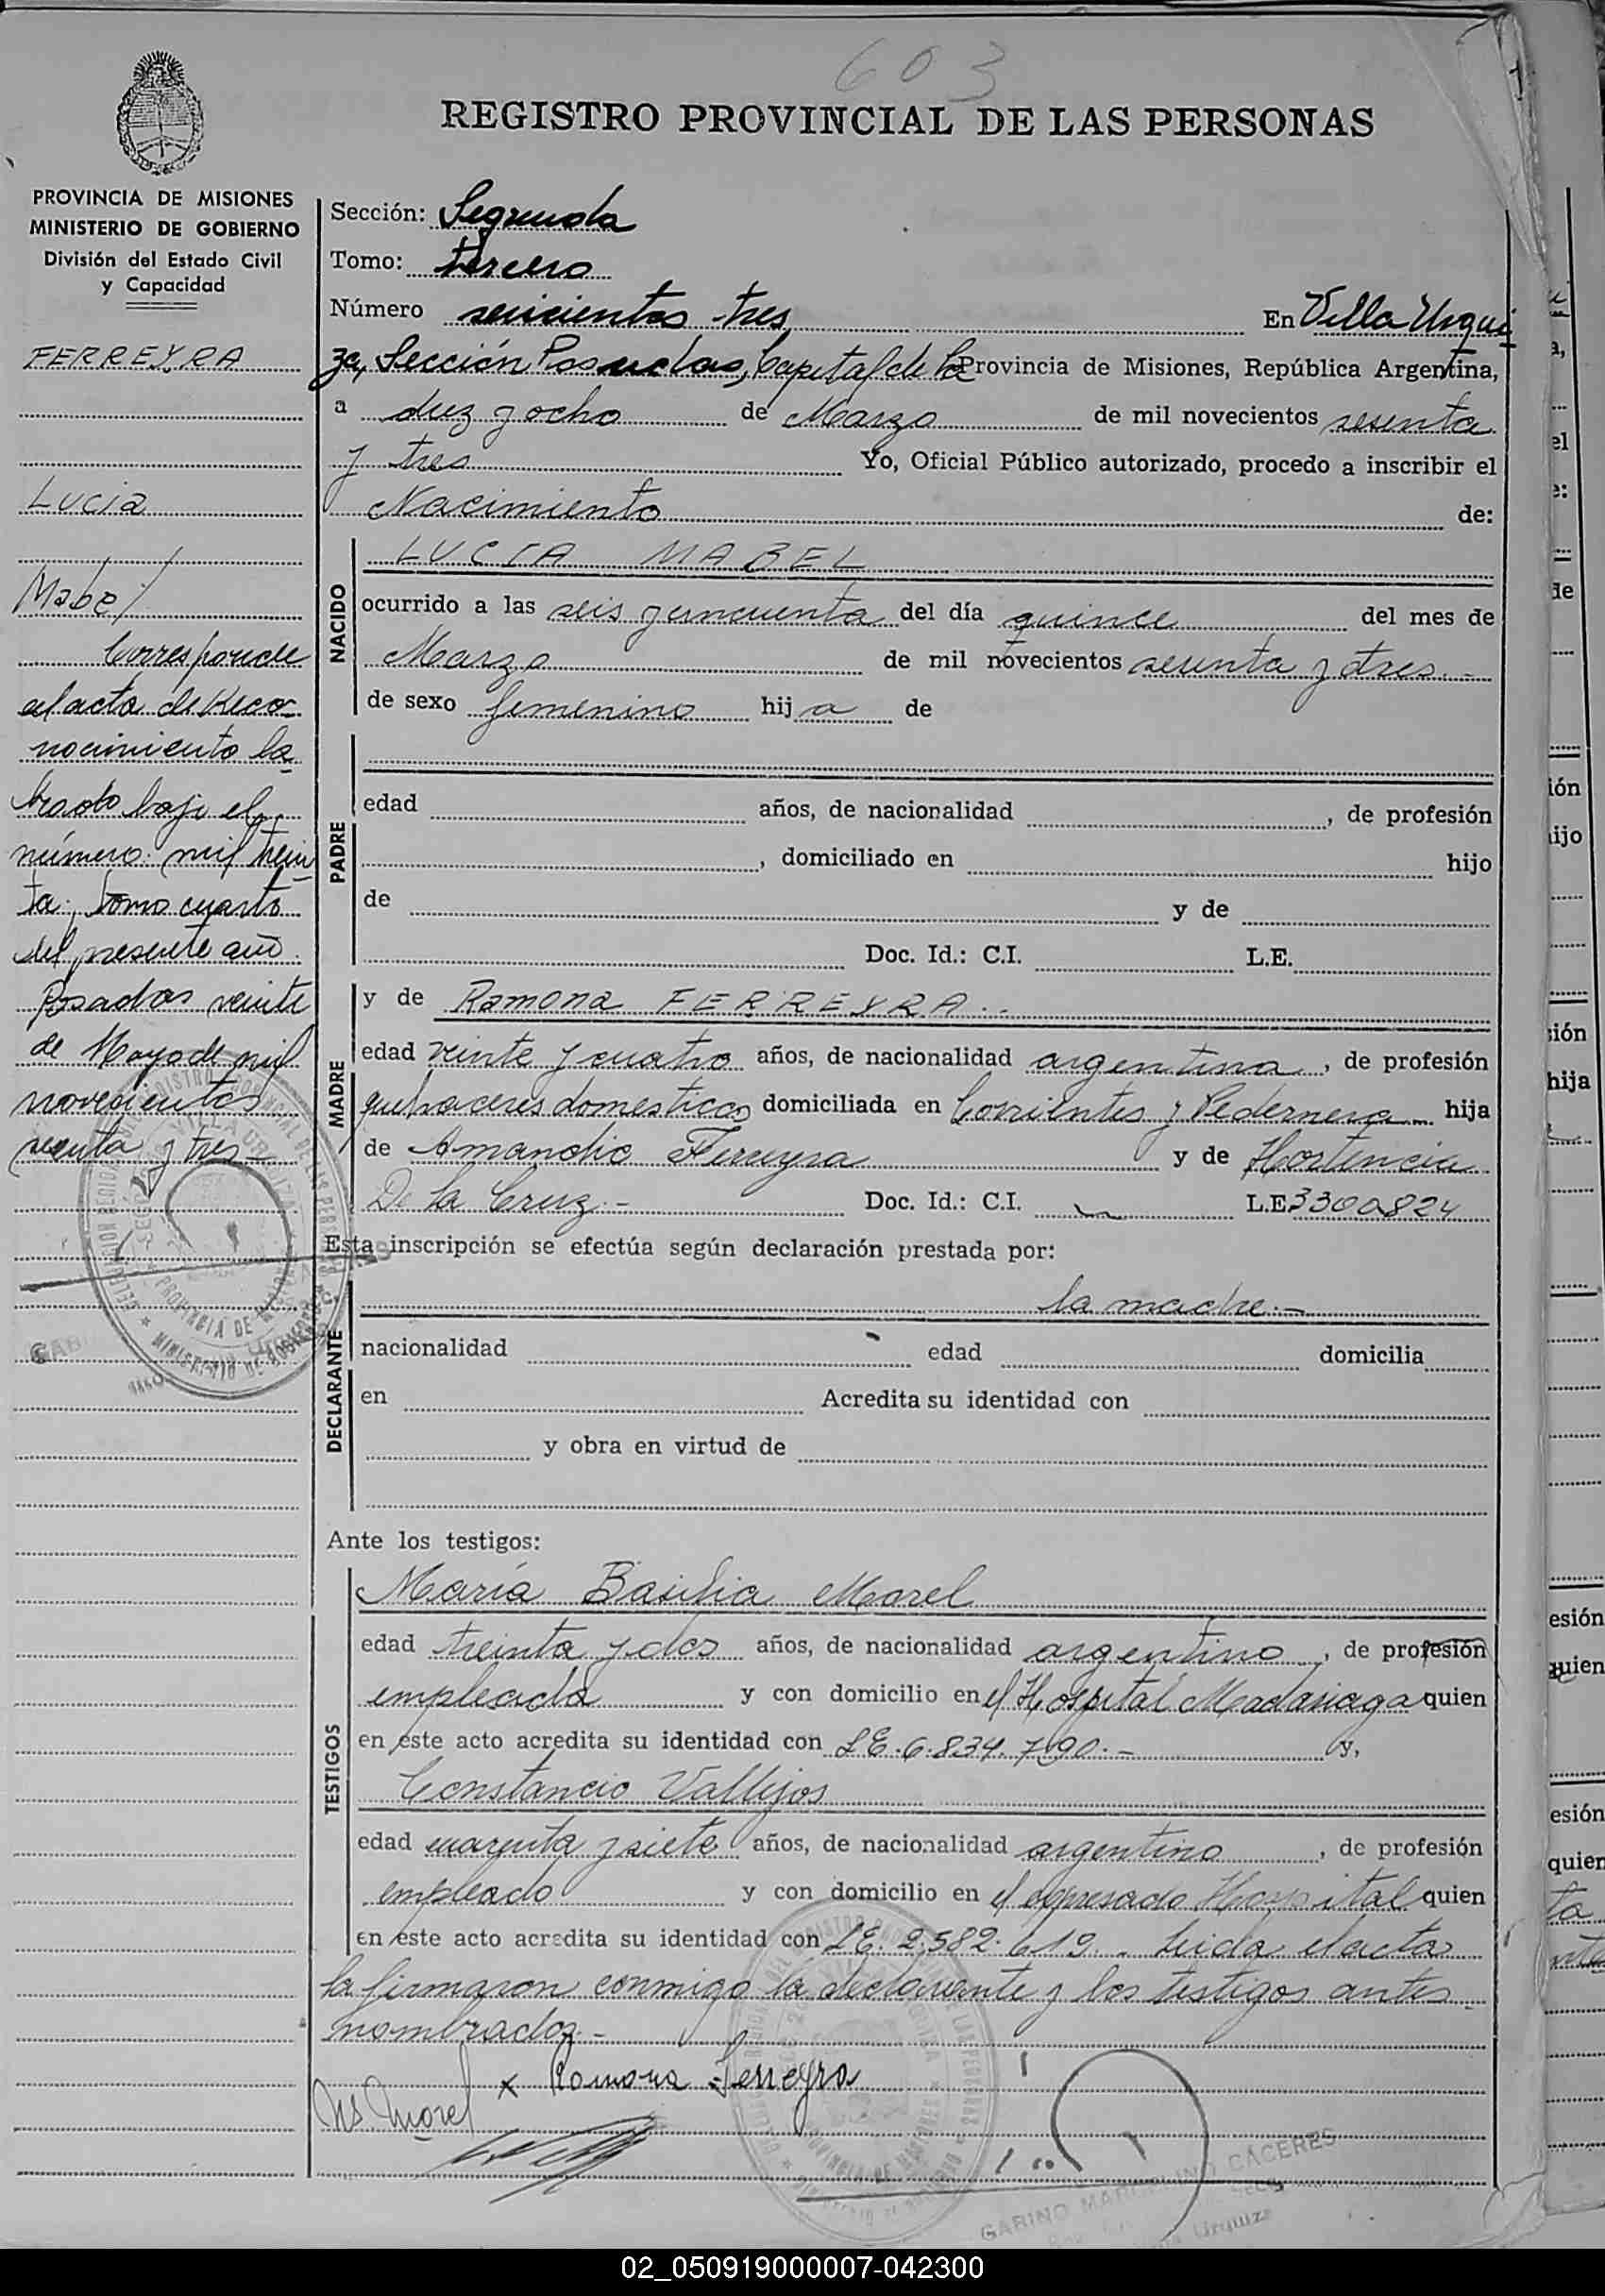 603
REGISTRO PROVINCIAL DE LAS PERSONAS
PROVINCIA DE MISIONES
MINISTERIO DE GOBIERNO
División del Estado Civil
y Capacidad
FERREYRA
Lucia
Mabel
Corresponde
al acta de Reco-
nocimiento la-
brado bajo el
número: mil trein
ta, tomo cuarto
del presente año.
Posadas veinte
de Mayo de mil
novecientos
sesenta y tres -
Sección: Segunda
Tomo: tercero
Número seiscientos tres En Villa Urqui
za, Sección Posadas, Capital de la Provincia de Misiones, República Argentina,
a diez y ocho de Marzo de mil novecientos sesenta
y tres Yo, Oficial Público autorizado, procedo a inscribir el
Nacimiento de:
NACIDO
LUCIA MABEL
ocurrido a las seis y cincuenta del día quince del mes de
Marzo de mil novecientos sesenta y tres. -
de sexo femenino hija de
PADRE
edad años, de nacionalidad , de profesión
, domiciliado en hijo
de y de
Doc. Id.: C.I. L.E.
MADRE
y de Ramona FERREYRA. -
edad veinte y cuatro años, de nacionalidad argentina, de profesión
quehaceres domesticos domiciliada en Corrientes y Pedernera hija
de Amandio Ferreyra y de Hortencia
De la Cruz. - Doc. Id.: C.I. L.E. 3300824
Esta inscripción se efectúa según declaración prestada por:
DECLARANTE
la madre. -
nacionalidad edad domicilia
en Acredita su identidad con
y obra en virtud de
Ante los testigos:
TESTIGOS
María Basilia Morel
edad treinta y dos años, de nacionalidad argentino, de profesión
empleada y con domicilio en el Hospital Madariaga quien
en este acto acredita su identidad con L.E. 6.834.790. - y,
Constancio Vallejos
edad cuarenta y siete años, de nacionalidad argentino, de profesión
empleado y con domicilio en el expresado Hospital quien
en este acto acredita su identidad con L.E. 2.582.619. - Leida el acta
la firmaron conmigo la declarante y los testigos antes
nombrados. -
x Ramona Ferreyra
Ms. Morel
GARINO MARCELINO CACERES
Urquiza
02_050919000007-042300